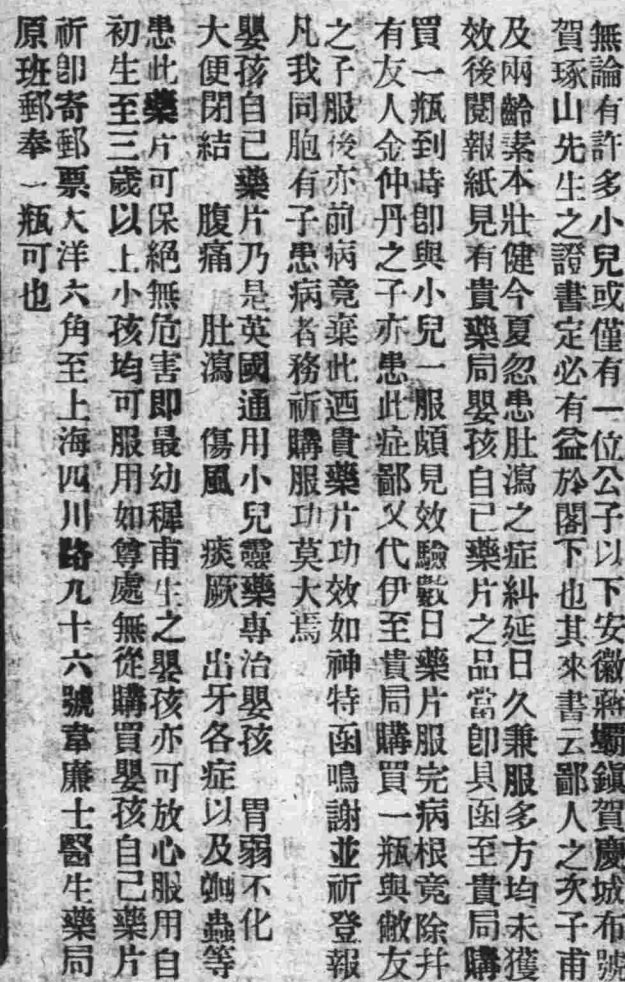 無論有許多小兒或僅有一位公子以下安徽蔣壩鎮賀慶城布號
賀琢山先生之證書定必有益於閣下也其來書云鄙人之次子甫
及兩齡素本壯健今夏忽患肚瀉之症糾延日久兼服多方均未獲
效後閱報紙見有貴藥局嬰孩自己藥片之品當卽具函至貴局購
買一瓶到時卽與小兒一服頗見效驗數日藥片服完病根竟除幷
有友人金仲丹之子亦患此症鄙又代伊至貴局購買一瓶與敝友
之子服後亦前病竟棄此迺貴藥片功效如神特函鳴謝並祈登報
凡我同胞有子患病者務祈購服功莫大焉
嬰孩自己藥片乃是英國通用小兒靈藥專治嬰孩 胃弱不化
大便閉結 腹痛 肚瀉 傷風 痰厥 出牙各症以及蛔蟲等
患此藥片可保絕無危害即最幼穉甫生之嬰孩亦可放心服用自
初生至三歲以上小孩均可服用如尊處無從購買嬰孩自己藥片
祈卽寄郵票大洋六角至上海四川路九十六號韋廉士醫生藥局
原班郵奉一瓶可也